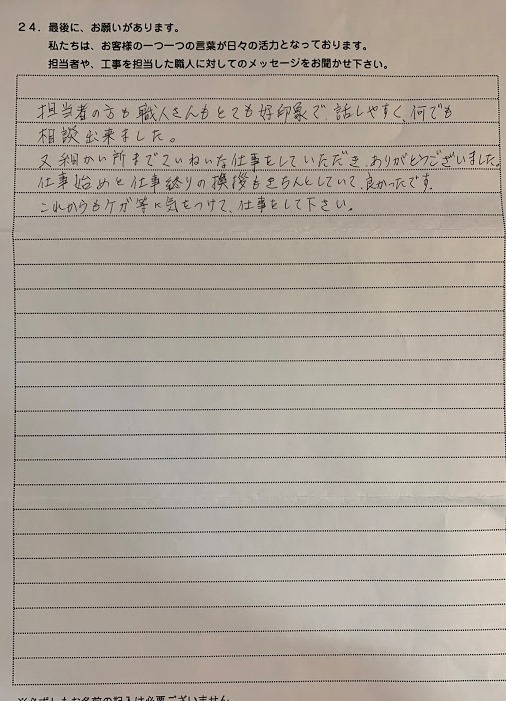 24．最後に、お願いがあります。
私たちは、お客様の一つ一つの言葉が日々の活力となっております。
担当者や、工事を担当した職人に対してのメッセージをお聞かせ下さい。
担当者の方も職人さんもとても好印象で、話しやすく、何でも
相談出来ました。
又細かい所までていねいな仕事をしていただき、ありがとうございました。
仕事始めと仕事終りの挨拶もきちんとしていて、良かったです。
これからもケガ等に気をつけて、仕事をして下さい。
※必ずしもお名前の記入は必要ございません